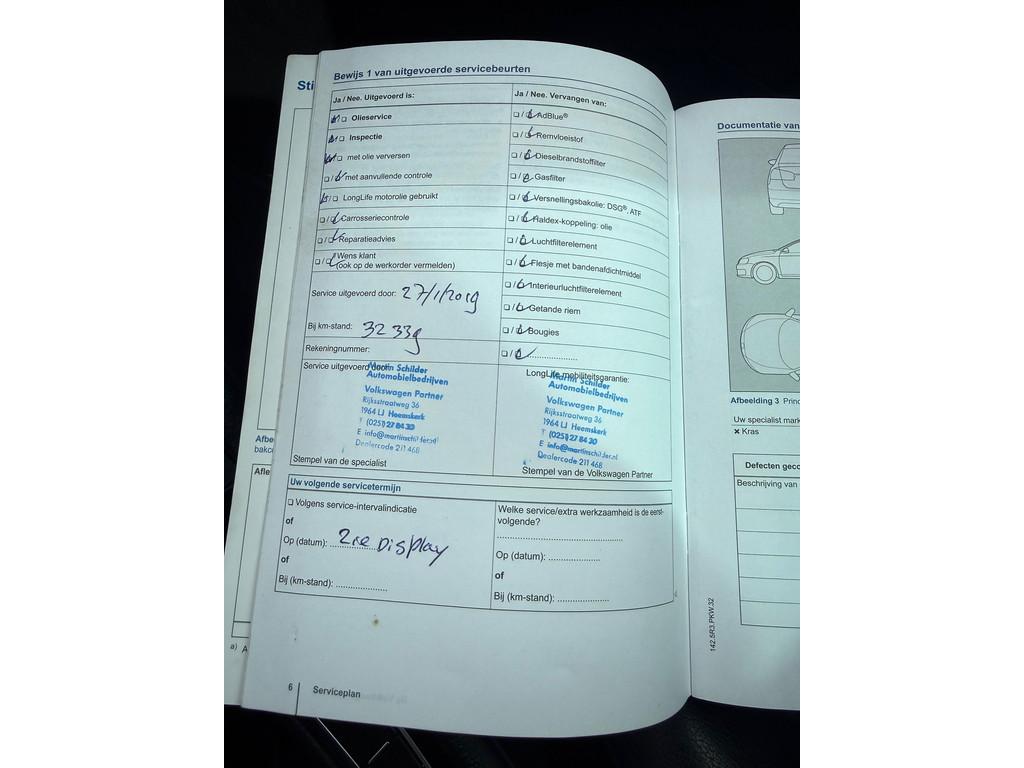 Sti
Bewijs 1 van uitgevoerde servicebeurten
Ja / Nee. Uitgevoerd is:
Olieservice
Inspectie
met olie verversen
met aanvullende controle
LongLife motorolie gebruikt
Carrosseriecontrole
Reparatieadvies
Wens klant
(ook op de werkorder vermelden)
Service uitgevoerd door: 27/1/2019
Bij km-stand: 32339
Rekeningnummer:
Service uitgevoerd door:
Martin Schilder
Automobielbedrijven
Volkswagen Partner
Rijksstraatweg 36
1964 LJ Heemskerk
T (0251) 27 84 30
E info@martinschilder.nl
Dealercode 211 468
Stempel van de specialist
Ja / Nee. Vervangen van:
AdBlue®
Remvloeistof
Dieselbrandstoffilter
Gasfilter
Versnellingsbakolie: DSG®, ATF
Haldex-koppeling: olie
Luchtfilterelement
Flesje met bandenafdichtmiddel
Interieurluchtfilterelement
Getande riem
Bougies
LongLife mobiliteitsgarantie:
Martin Schilder
Automobielbedrijven
Volkswagen Partner
Rijksstraatweg 36
1964 LJ Heemskerk
T (0251) 27 84 30
E info@martinschilder.nl
Dealercode 211 468
Stempel van de Volkswagen Partner
Uw volgende servicetermijn
Volgens service-intervalindicatie
of
Op (datum): zie Display
of
Bij (km-stand): ....................
Welke service/extra werkzaamheid is de eerst-
volgende?
Op (datum): ....................
of
Bij (km-stand): ....................
6 Serviceplan
Afbe
bakc
Afle
a) A
Documentatie van
Afbeelding 3 Princ
Uw specialist mark
× Kras
Defecten geco
Beschrijving van
142.5R3.PKW.32